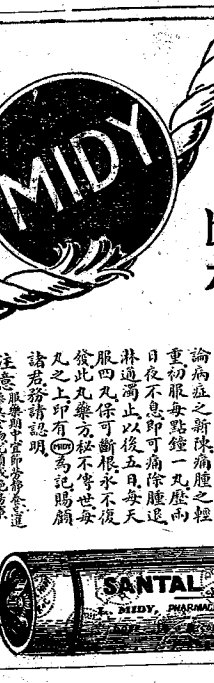 MIDY
論病症之新陳痛腫之輕
重初服每點鐘一丸歷兩
日夜不息即可痛除腫退
淋通濁止以後五日每天
服四丸保可斷根永不復
發此丸藥方秘不傳世每
丸之上印有MIDY為記賜顧
諸君務請認明
注意
SANTAL
L. MIDY, PHARMAC